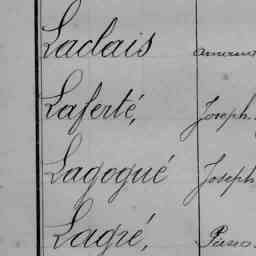 Laclais
Laferté, Joseph
Lagogué Joseph
Lagré,